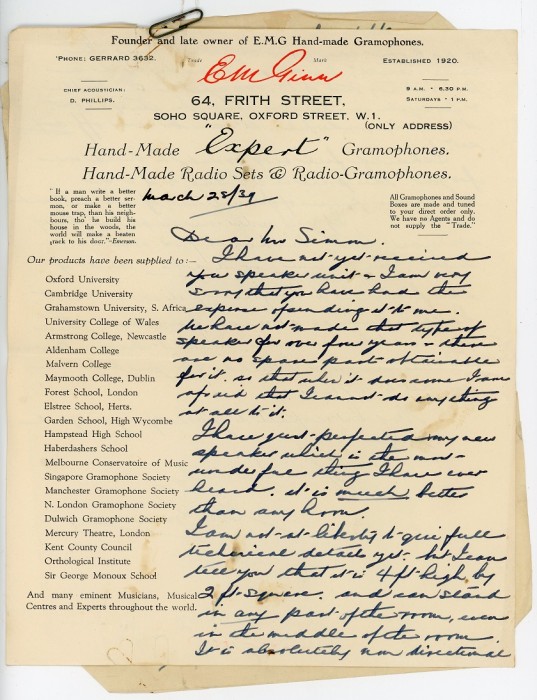 Founder and late owner of E.M.G Hand-made Gramophones.
'Phone: GERRARD 3632.
Trade
Mark
ESTABLISHED 1920.
E M Ginn
CHIEF ACOUSTICIAN:
D. PHILLIPS.
9 A.M. - 6.30 P.M.
SATURDAYS - 1 P.M.
64, FRITH STREET,
SOHO SQUARE, OXFORD STREET, W.1.
(ONLY ADDRESS)
Hand-Made "Expert" Gramophones.
Hand-Made Radio Sets & Radio-Gramophones.
"If a man write a better
book, preach a better ser-
mon, or make a better
mouse trap, than his neigh-
bours, tho' he build his
house in the woods, the
world will make a beaten
track to his door."-Emerson.
All Gramophones and Sound
Boxes are made and tuned
to your direct order only.
We have no Agents and do
not supply the "Trade."
March 28/39
Our products have been supplied to:—
Oxford University
Cambridge University
Grahamstown University, S. Africa
University College of Wales
Armstrong College, Newcastle
Aldenham College
Malvern College
Maymooth College, Dublin
Forest School, London
Elstree School, Herts.
Garden School, High Wycombe
Hampstead High School
Haberdashers School
Melbourne Conservatoire of Music
Singapore Gramophone Society
Manchester Gramophone Society
N. London Gramophone Society
Dulwich Gramophone Society
Mercury Theatre, London
Kent County Council
Orthological Institute
Sir George Monoux School
And many eminent Musicians, Musical
Centres and Experts throughout the world.
Dear Mr Simon.
I have not yet received
your speaker unit & I am very
sorry that you have had the
expense of sending it to me.
We have not made that type of
speaker for over four years & there
are no spare parts obtainable
for it. so that when it does come I am
afraid that I cannot do anything
at all to it.
I have just perfected my new
speaker which is the most
wonderful thing I have ever
heard. it is much better
than any horn.
I am not at liberty to give full
technical details yet. but I can
tell you that it is 4 ft high by
2 ft square. and can stand
in any part of the room, even
in the middle of the room.
It is absolutely non directional